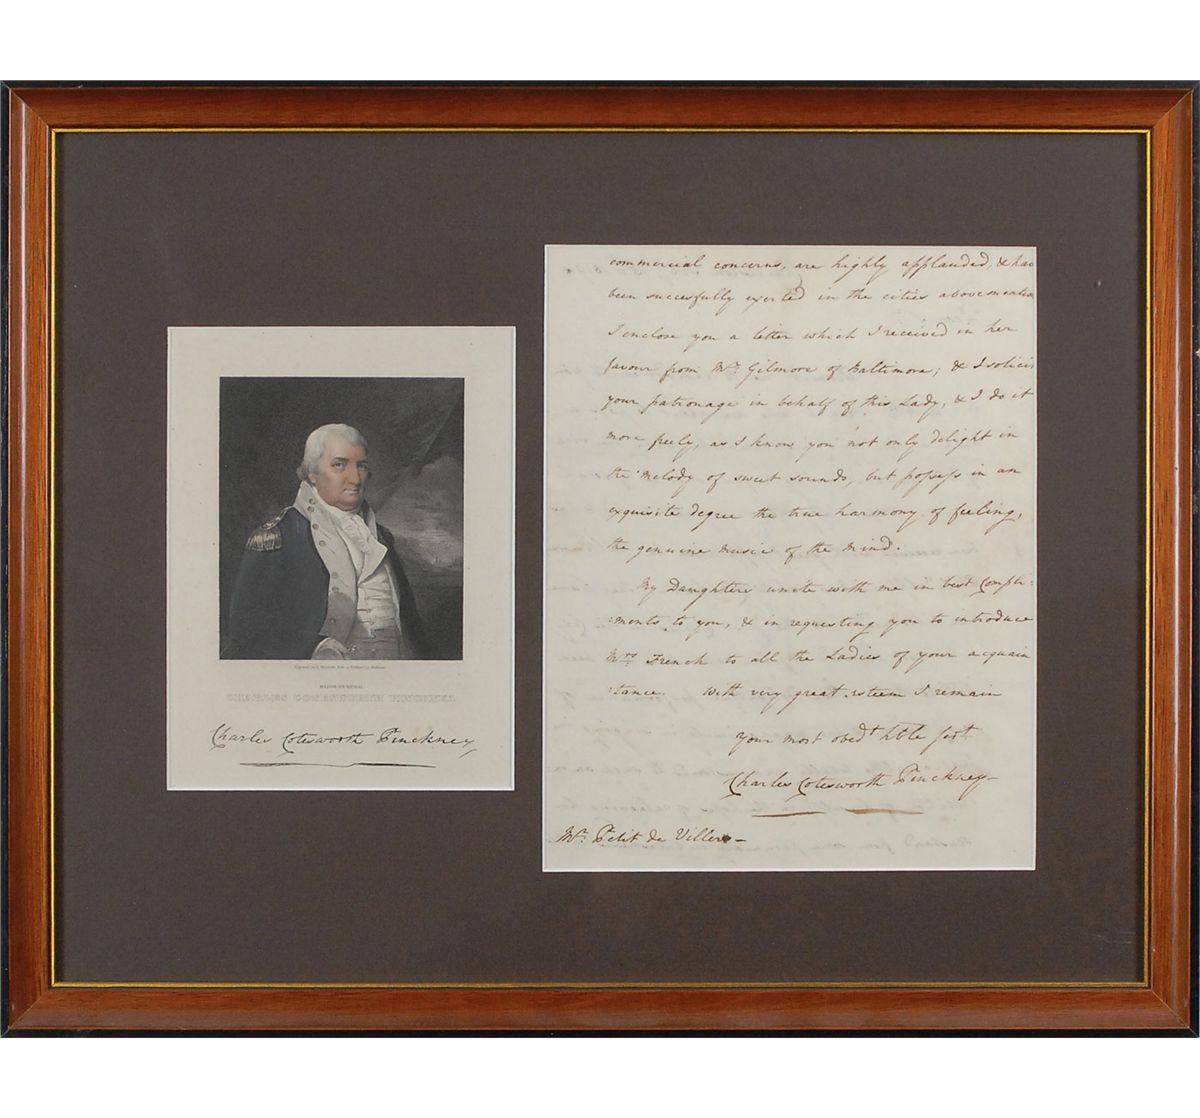 Engraved by E. Wellmore from a Painting by Malbone
MAJOR GENERAL
CHARLES COTESWORTH PINCKNEY.
Charles Cotesworth Pinckney
commercial concerns, are highly applauded, & hav
been successfully exerted in the cities abovemention
I enclose you a letter which I received in her
favour from Mr. Gilmore of Baltimore; & I solicit
your patronage in behalf of this Lady, & I do it
more freely, as I know you not only delight in
the melody of sweet sounds, but possess in an
exquisite degree the true harmony of feeling,
the genuine music of the mind.
My Daughters unite with me in best Compli:
:ments to you, & in requesting you to introduce
Mrs. French to all the Ladies of your acquain
:tance. With very great esteem I remain
Your most obedt. hble servt.
Charles Cotesworth Pinckney—
Mr. Petit de Villers—